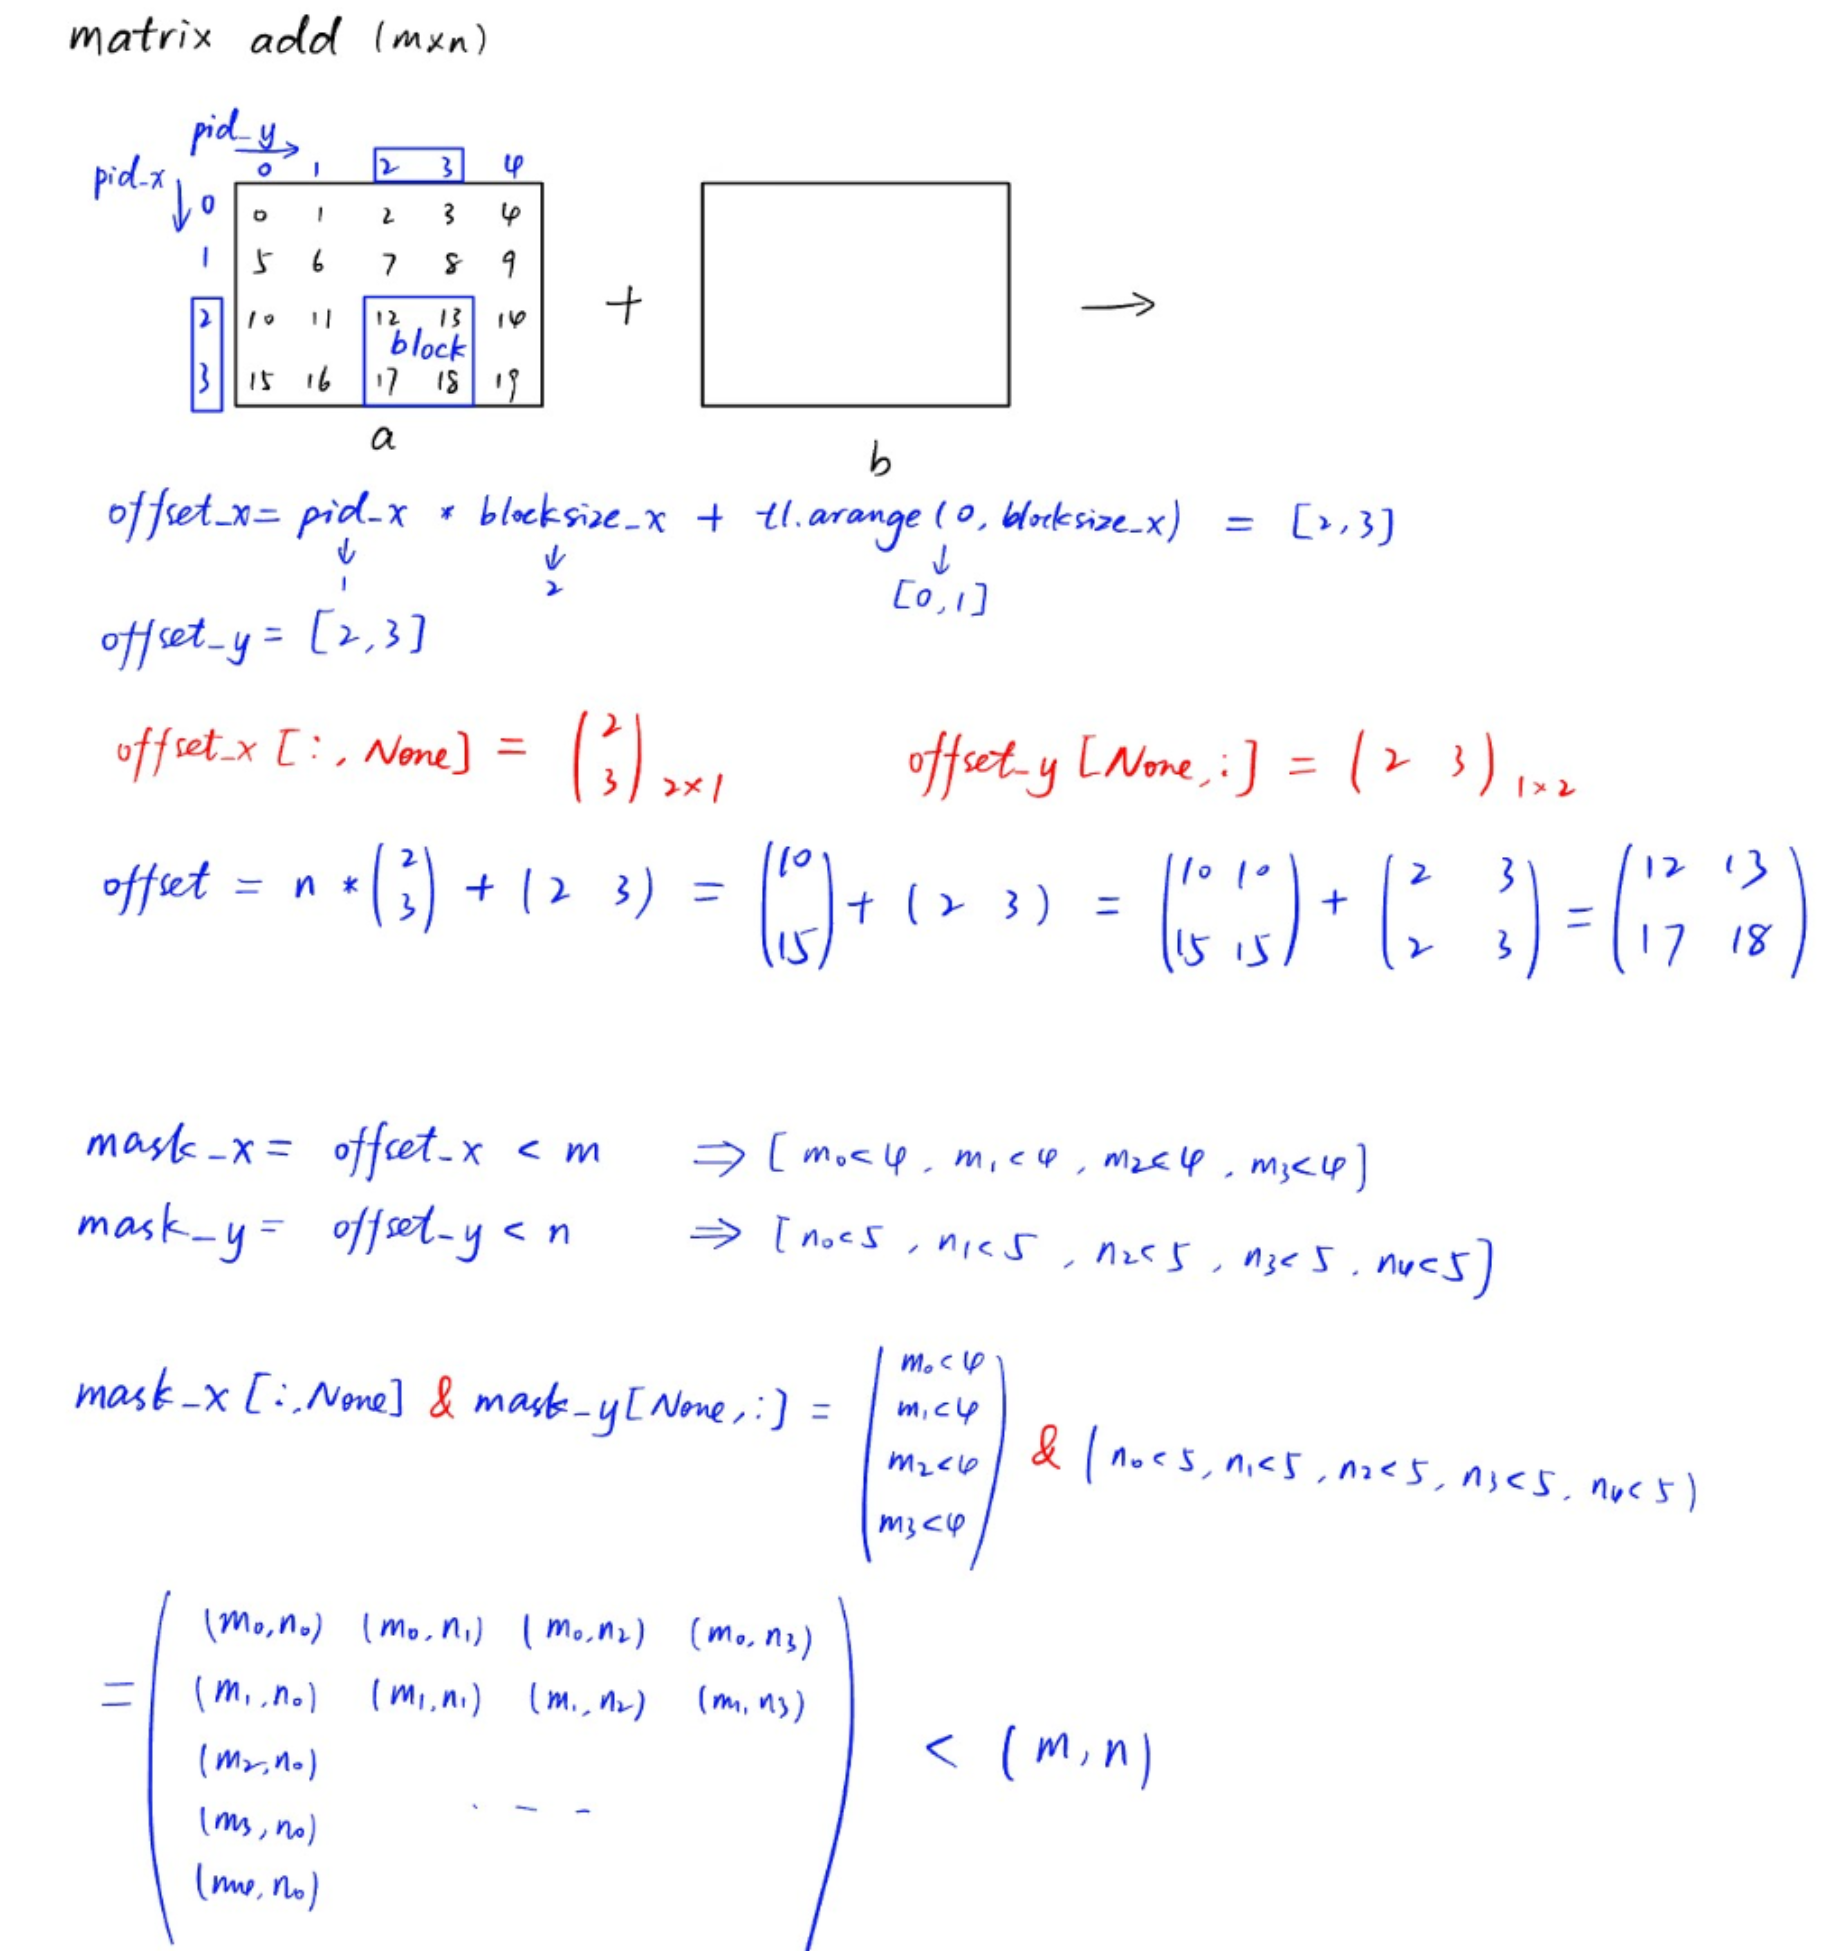 matrix add (m×n)
pid_y
pid_x
0 1 2 3 4
0 0 1 2 3 4
1 5 6 7 8 9
2 10 11 12 13 14
block
3 15 16 17 18 19
+ →
a
b
offset_x = pid_x * blocksize_x + tl.arange(0, blocksize_x) = [2,3]
↓ ↓ ↓
1 2 [0,1]
offset_y = [2,3]
offset_x [:, None] = (2 3) 2×1 offset_y [None, :] = (2 3) 1×2
offset = n * (2 3) + (2 3) = (10 15) + (2 3) = (10 10 15 15) + (2 3 2 3) = (12 13 17 18)
mask_x = offset_x < m ⇒ [m0<4, m1<4, m2<4, m3<4]
mask_y = offset_y < n ⇒ [n0<5, n1<5, n2<5, n3<5, n4<5]
mask_x [:, None] & mask_y [None, :] = (m0<4 m1<4 m2<4 m3<4) & (n0<5, n1<5, n2<5, n3<5, n4<5)
(m0,n0) (m0,n1) (m0,n2) (m0,n3)
= (m1,n0) (m1,n1) (m1,n2) (m1,n3)
(m2,n0) < (m,n)
(m3,n0) . - -
(m4,n0)